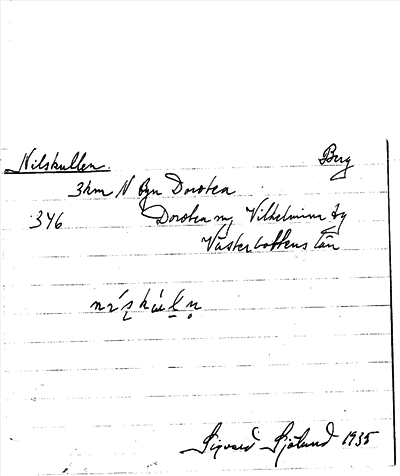 Nilskullen. Berg
3 km N byn Dorotea
346 Dorotea sn, Vilhelmina tg
Västerbottens län
Sigvard Sjölund 1935